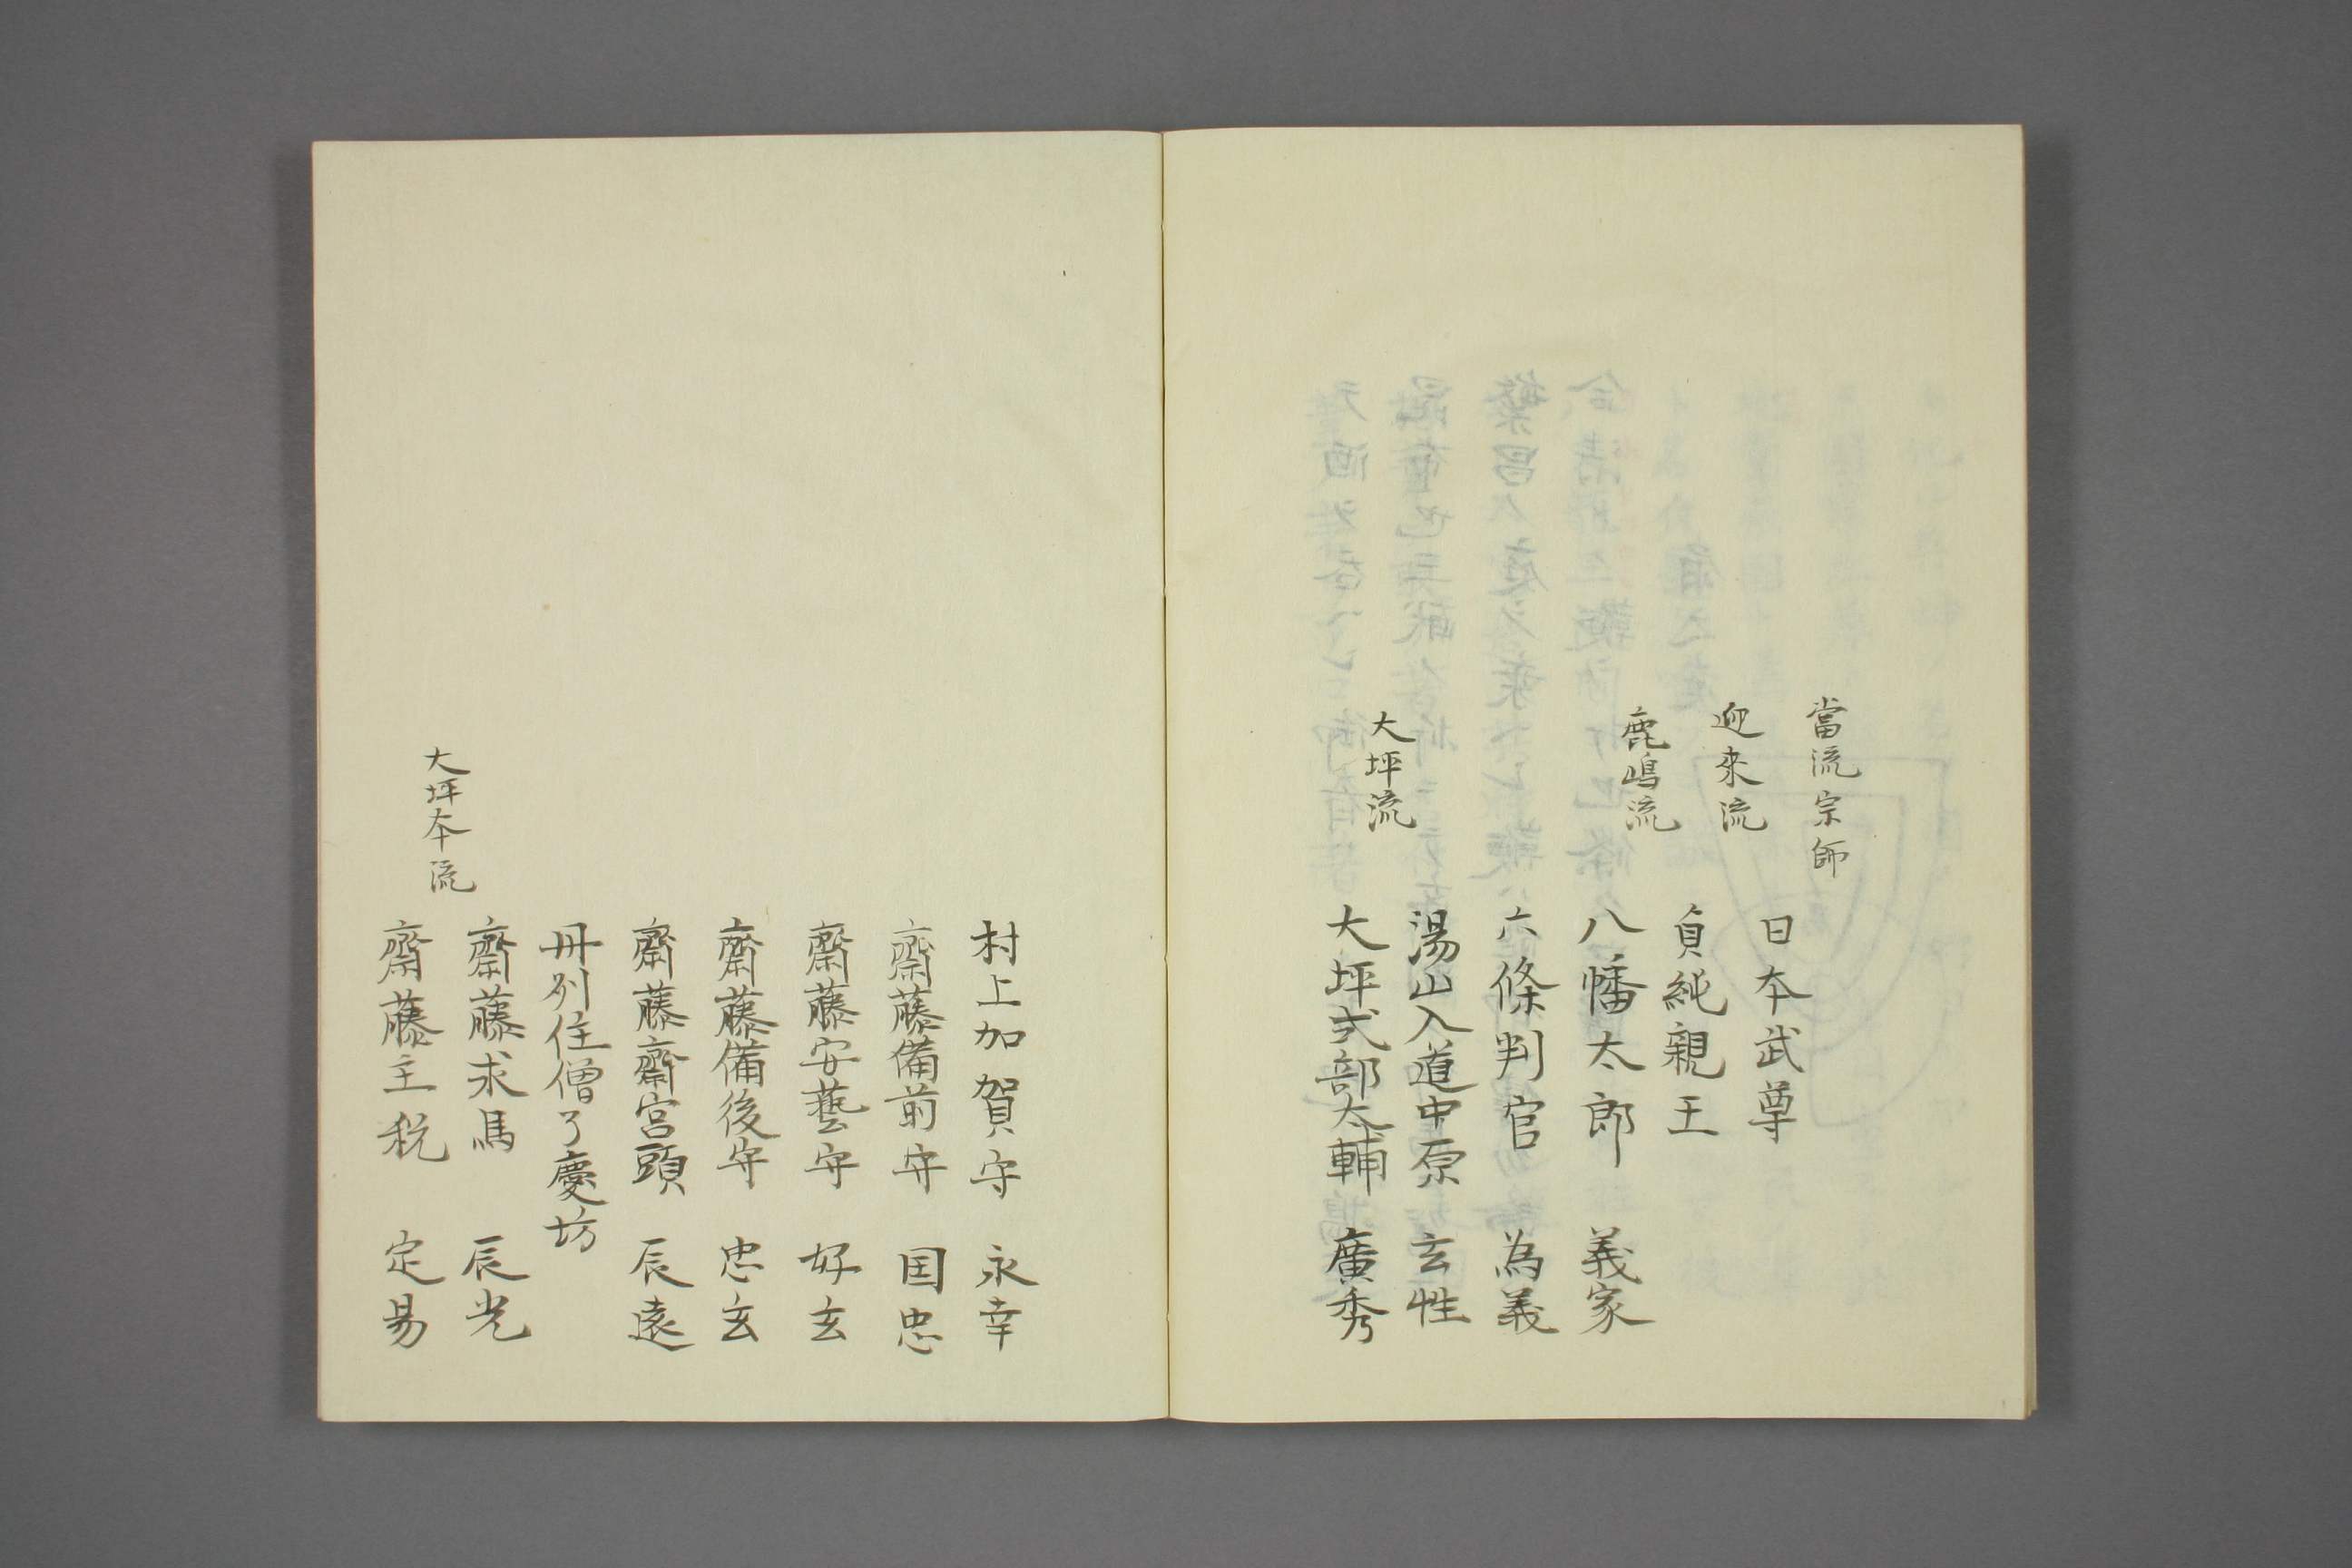 當流宗師
日本武尊
迎来流
貞純親王
鹿嶋流
八幡太郎 義家
六條判官 為義
湯山入道中原 玄性
大坪流
大坪式部太輔 廣秀
村上加賀守 永幸
齋藤備前守 国忠
齋藤安藝守 好玄
齋藤備後守 忠玄
齋藤齋宮頭 辰遠
丹州住僧了慶坊
齋藤求馬 辰光
大坪本流
齋藤主税 定易